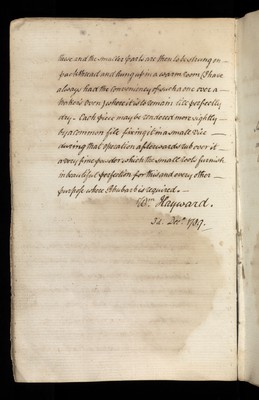 these and the smaller parts are then to be strung on
packthread and hung up in a warm room, I have
always had the conveniency of such a one over a
baker's oven, where it is to remain till perfectly
dry. Each piece may be rendered more sightly
by a common file fixing it in a small vice
during that operation afterwards rub over it
a very fine powder which the small roots furnish
in beautiful perfection for this and every other
purpose where Rhubarb is required.
Wm. Hayward.
Decr. 1789.